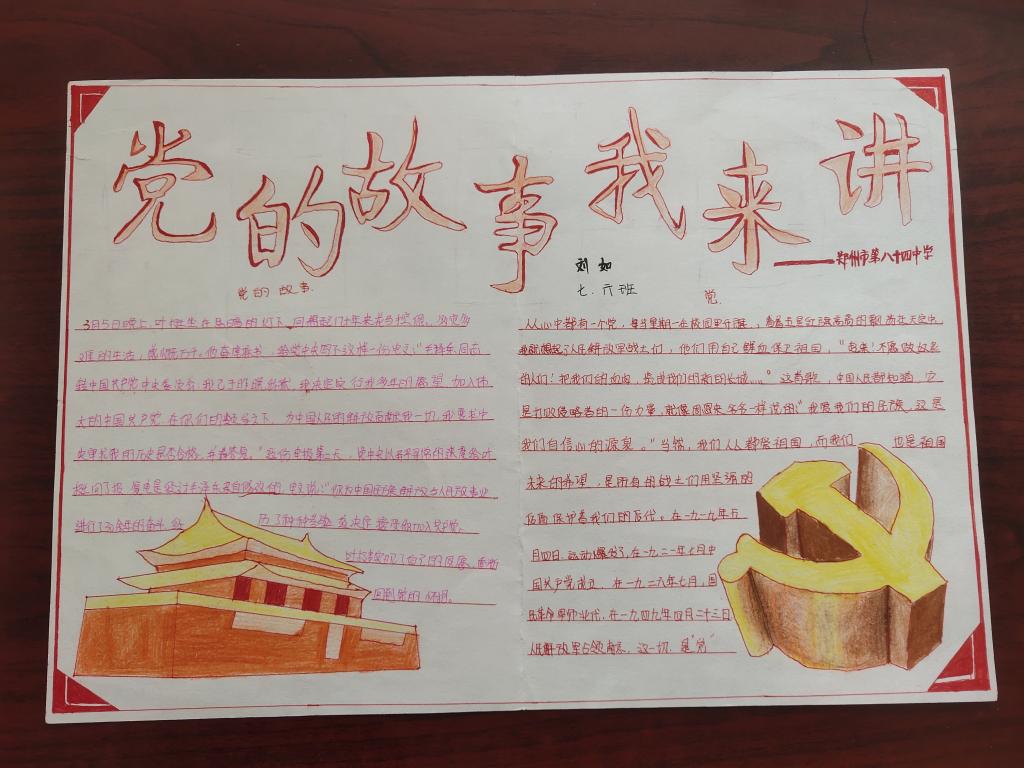 党的故事我来讲
——郑州市第八十四中学
刘如
七.六班
党的故事.
3月5日晚上,叶挺坐在的灯下,回想起几十年来
难的生活,感慨万千。他奋笔疾书,给党中央写下这样一份电文:"毛泽东同志
转中国共产党中央委员会:我已于昨晚出狱,我决定实行我多年的愿望,加入伟
大的中国共产党,在你们的领导之下,为中国人民的解放贡献我一切,我要求中
央审查我的历史是否合格,并请答复。"致伤电后第二天,党中央以
提回了报,复电是经过毛泽东亲自修改的,电文说:"你为中国民族解放与人民解放事业
进行了20余年的奋斗,经
历了种种考验,兹决定接受你加入共产党。
叶挺
回到党的怀抱。
党.
从心中都有一个党,每当星期一在校园里升旗,看着五星红旗高高的飘荡在天空中
我就想起了人民解放军战士们,他们用自己鲜血保卫祖国,"起来!不愿做奴隶
的人们!把我们的血肉,筑成我们的新的长城....."这首歌,中国人民都知道,它
是打败侵略者的一份力量,就像周恩来爷爷一样说的:"我爱我们的民族,这是
我们自信心的源泉。"当然,我们人人都爱祖国,而我们
也是祖国
未来的希望,是所有的战士们用坚强的
保护着我们的后代。在一九一九年五
月四日,运动爆发了,在一九二一年七月中
国共产党成立,在一九二六年七月,国
民革命军北伐,在一九四九年四月二十三日
人民解放军占领南京,这一切,是"党"